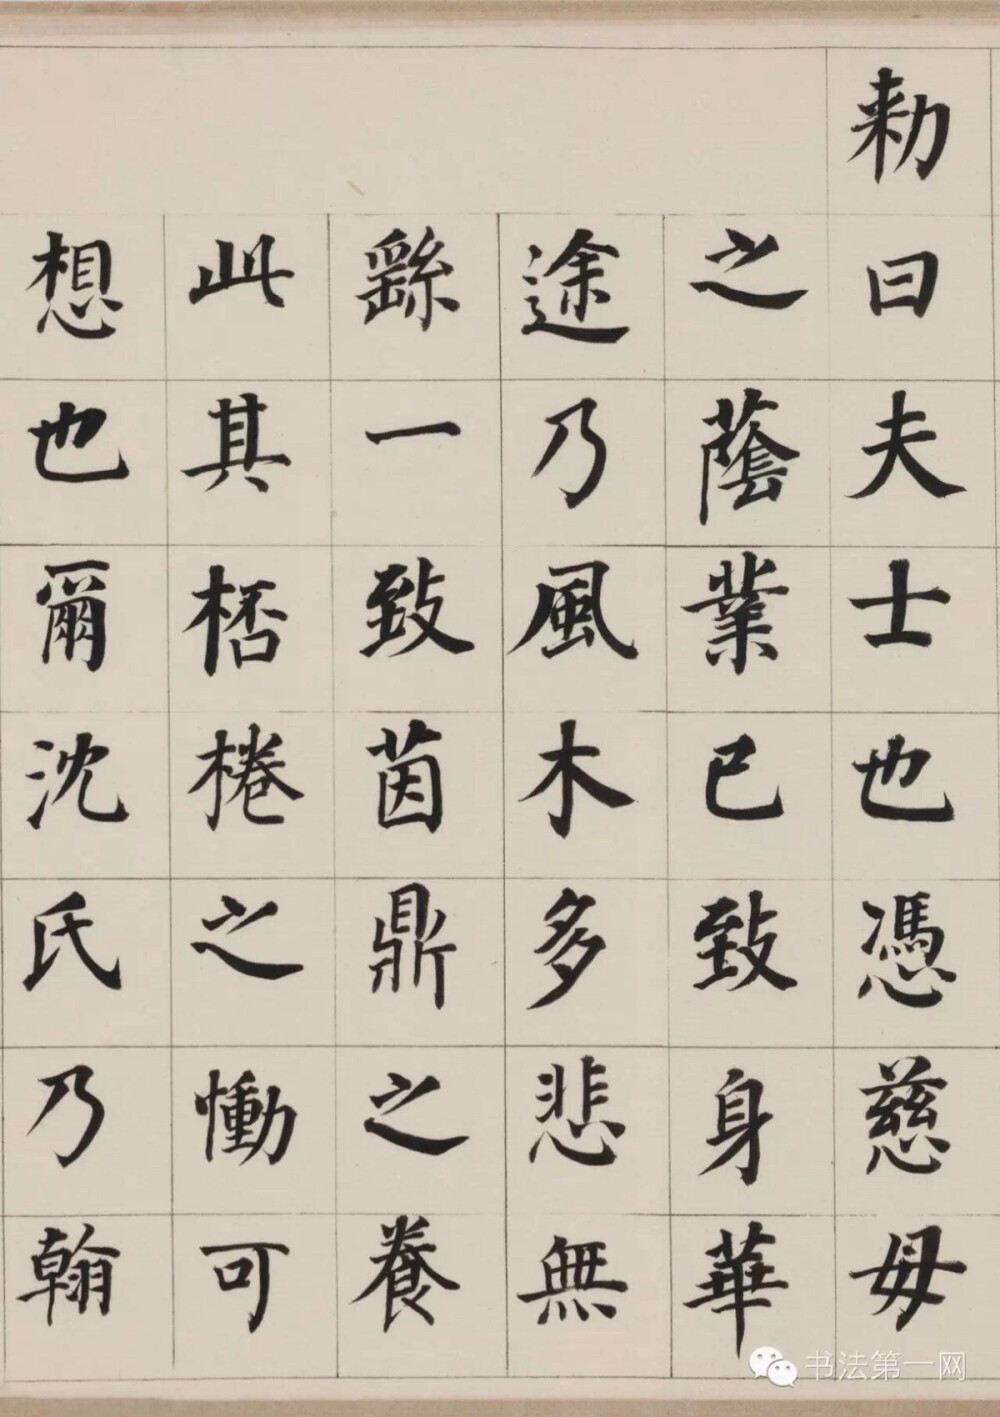 勑曰夫士也憑慈母
之蔭業已致身華
途乃風木多悲無
繇一致茵鼎之養
此其桮棬之慟可
想也爾沈氏乃翰
书法第一网